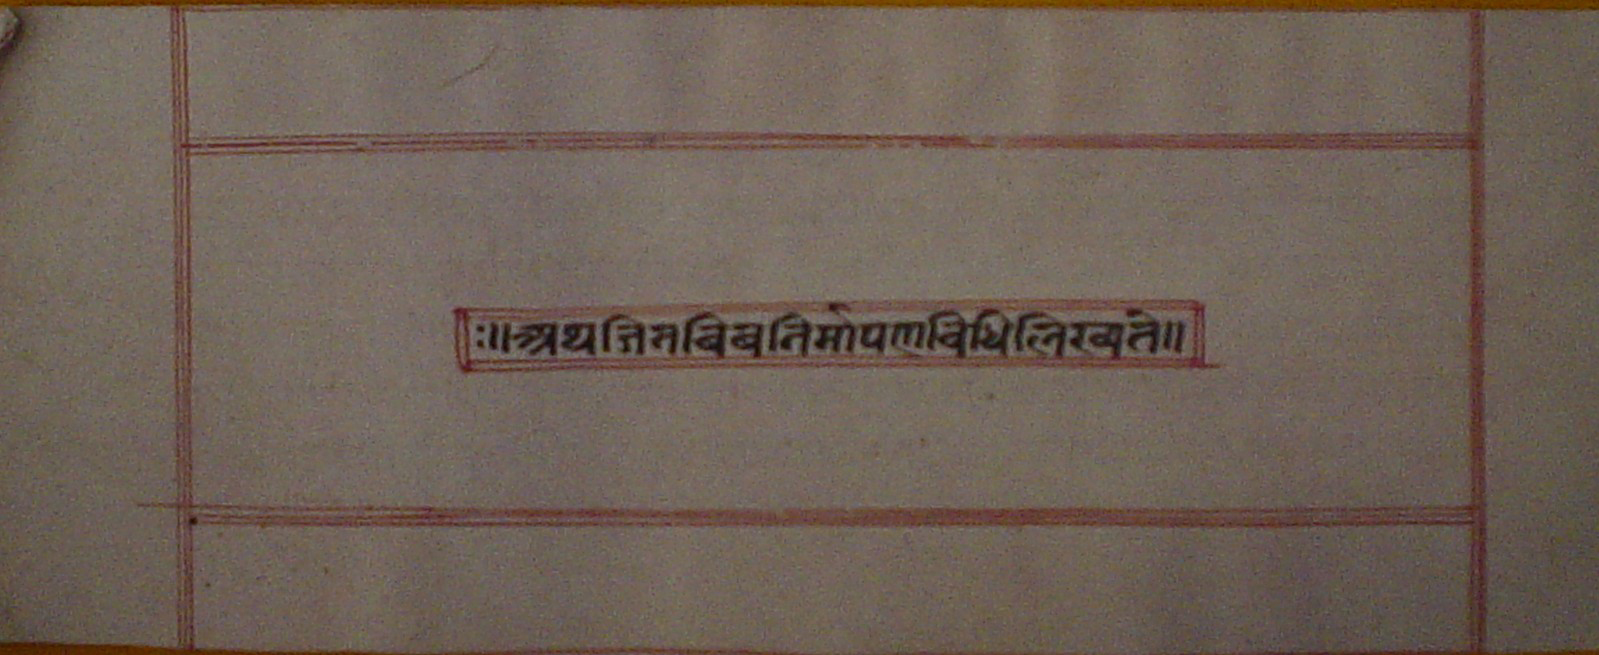 :॥अथजिनबिंबनिर्मापणविधिलिख्यते॥